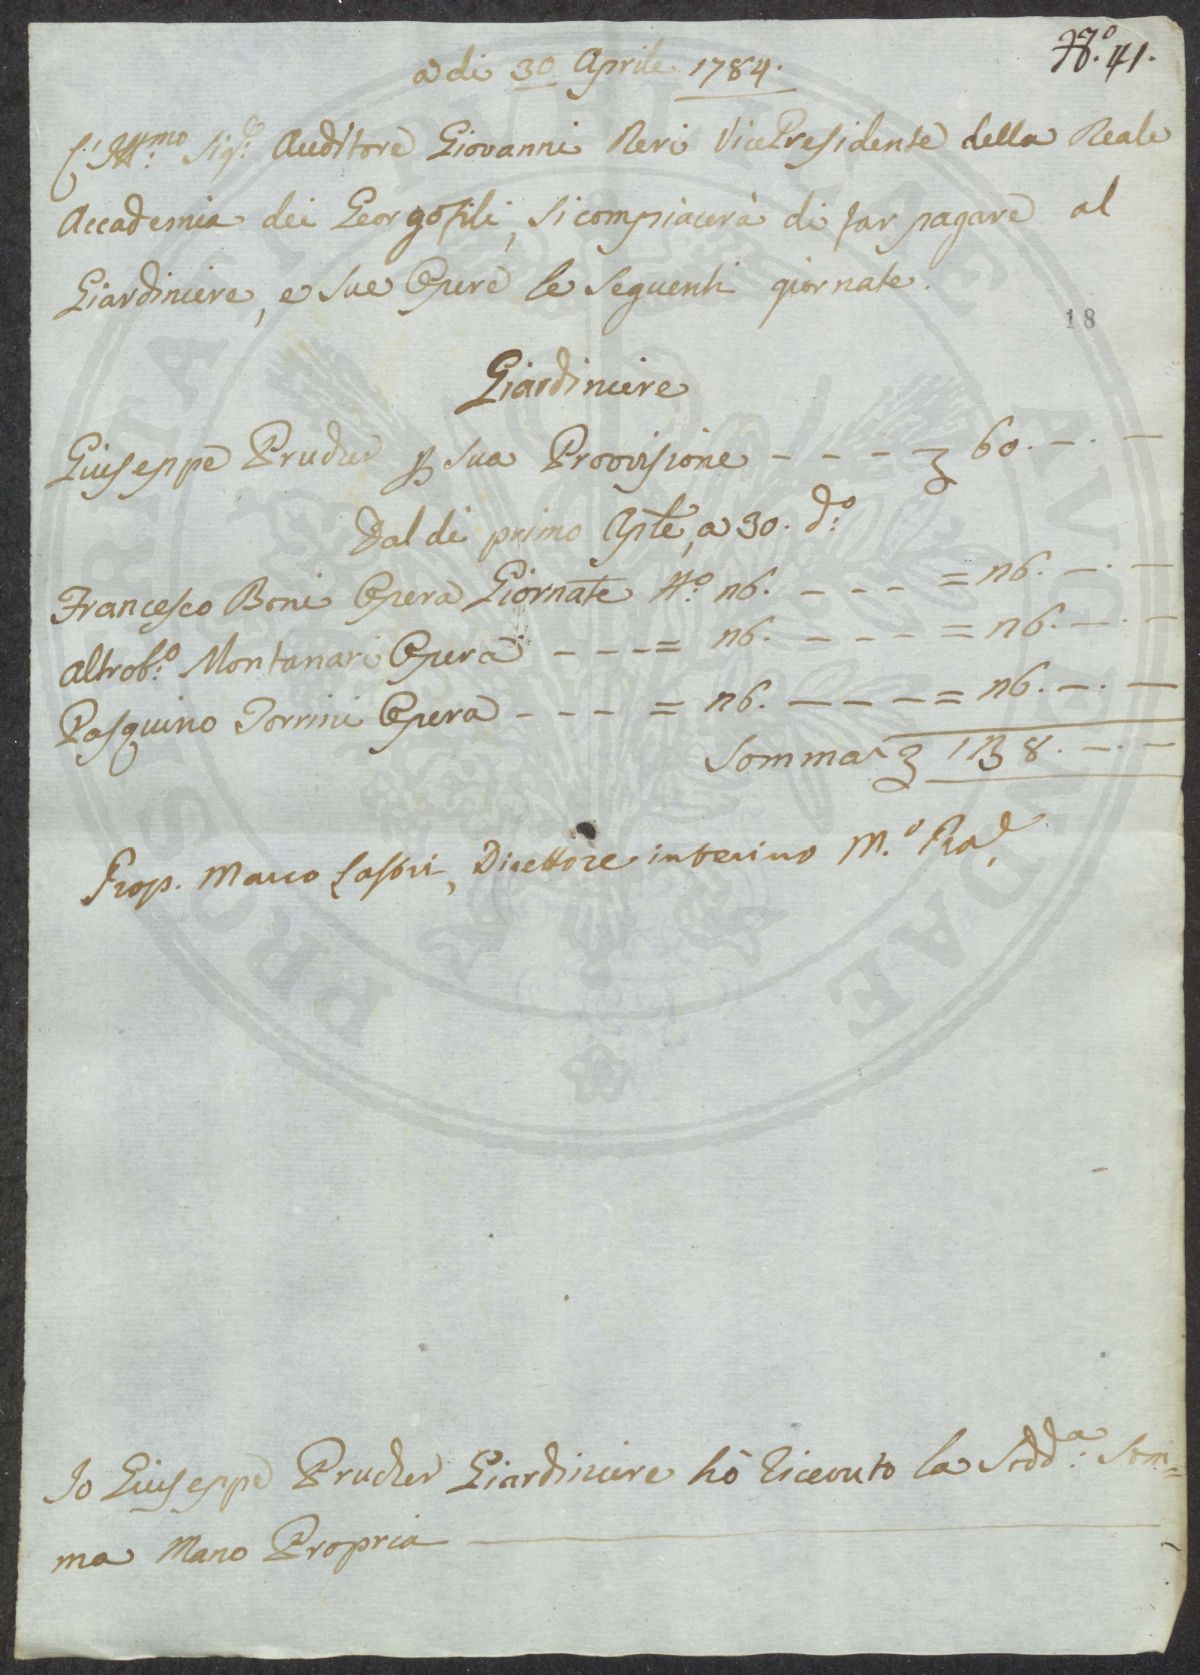 N.° 41.
a di 30 Aprile 1784.
L'Ill.mo Sig.re Auditore Giovanni Neri Vice Presidente della Reale
Accademia dei Georgofili, si compiacerà di far pagare al
Giardiniere, e sue Opere le seguenti giornate.
18
Giardiniere
Giuseppe Prucher p sua Provvisione - - - - 60. -. -
Dal di primo Aple, a 30. d.o
Francesco Boni Opera Giornate N.° 26. - - - = 26. -. -
Montanari Opera - - - = 26. - - - = 26. -. -
Pasquino Torrini Opera - - - = 26. - - - = 26. -. -
Somma 138. -. -
Prop. Marco Lastri, Direttore interino M.° Pra
Io Giuseppe Prucher Giardiniere hò ricevuto la Sudd.a Som=
ma Mano Propria
PROSPERITATI PVBLICAE AVGENDAE